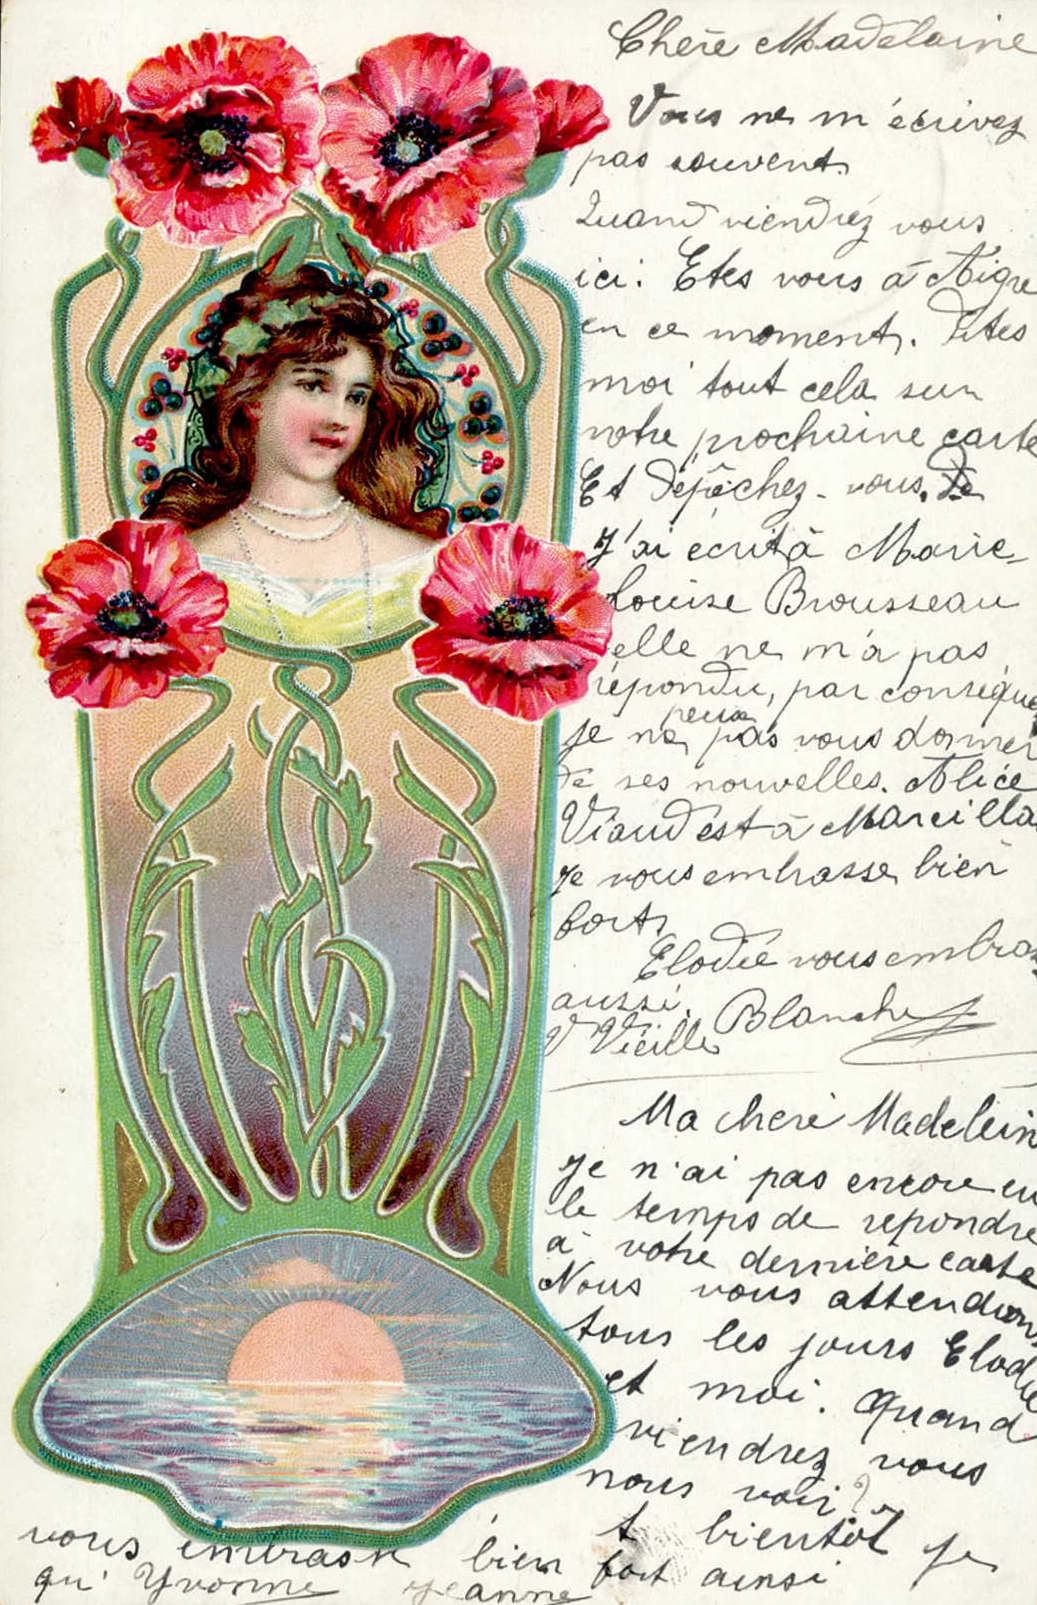 Chère Madelaine
Vous ne m'écrivez
pas souvent.
Quand viendréz vous
ici. Etes vous à Aigre
en ce moment. Dites
moi tout cela sur
votre prochaine carte
Et dépêchez-vous. De
J'ai écrit à Marie-
Louise Brousseau
elle ne m'a pas
répondu, par conséque
je ne peux pas vous donner
de ses nouvelles. Alice
Viaud est à Marcilla
Je vous embrasse bien
fort,
Elodie vous embras
aussi. Blanche
V Vieille
Ma chere Madelein
Je n'ai pas encore eu
le temps de repondre
a votre derniere carte
Nous vous attendons
tous les jours Elodie
et moi. Quand
viendrez vous
nous voir?
A bientôt je
vous embrasse bien fort ainsi
qu' Yvonne Jeanne